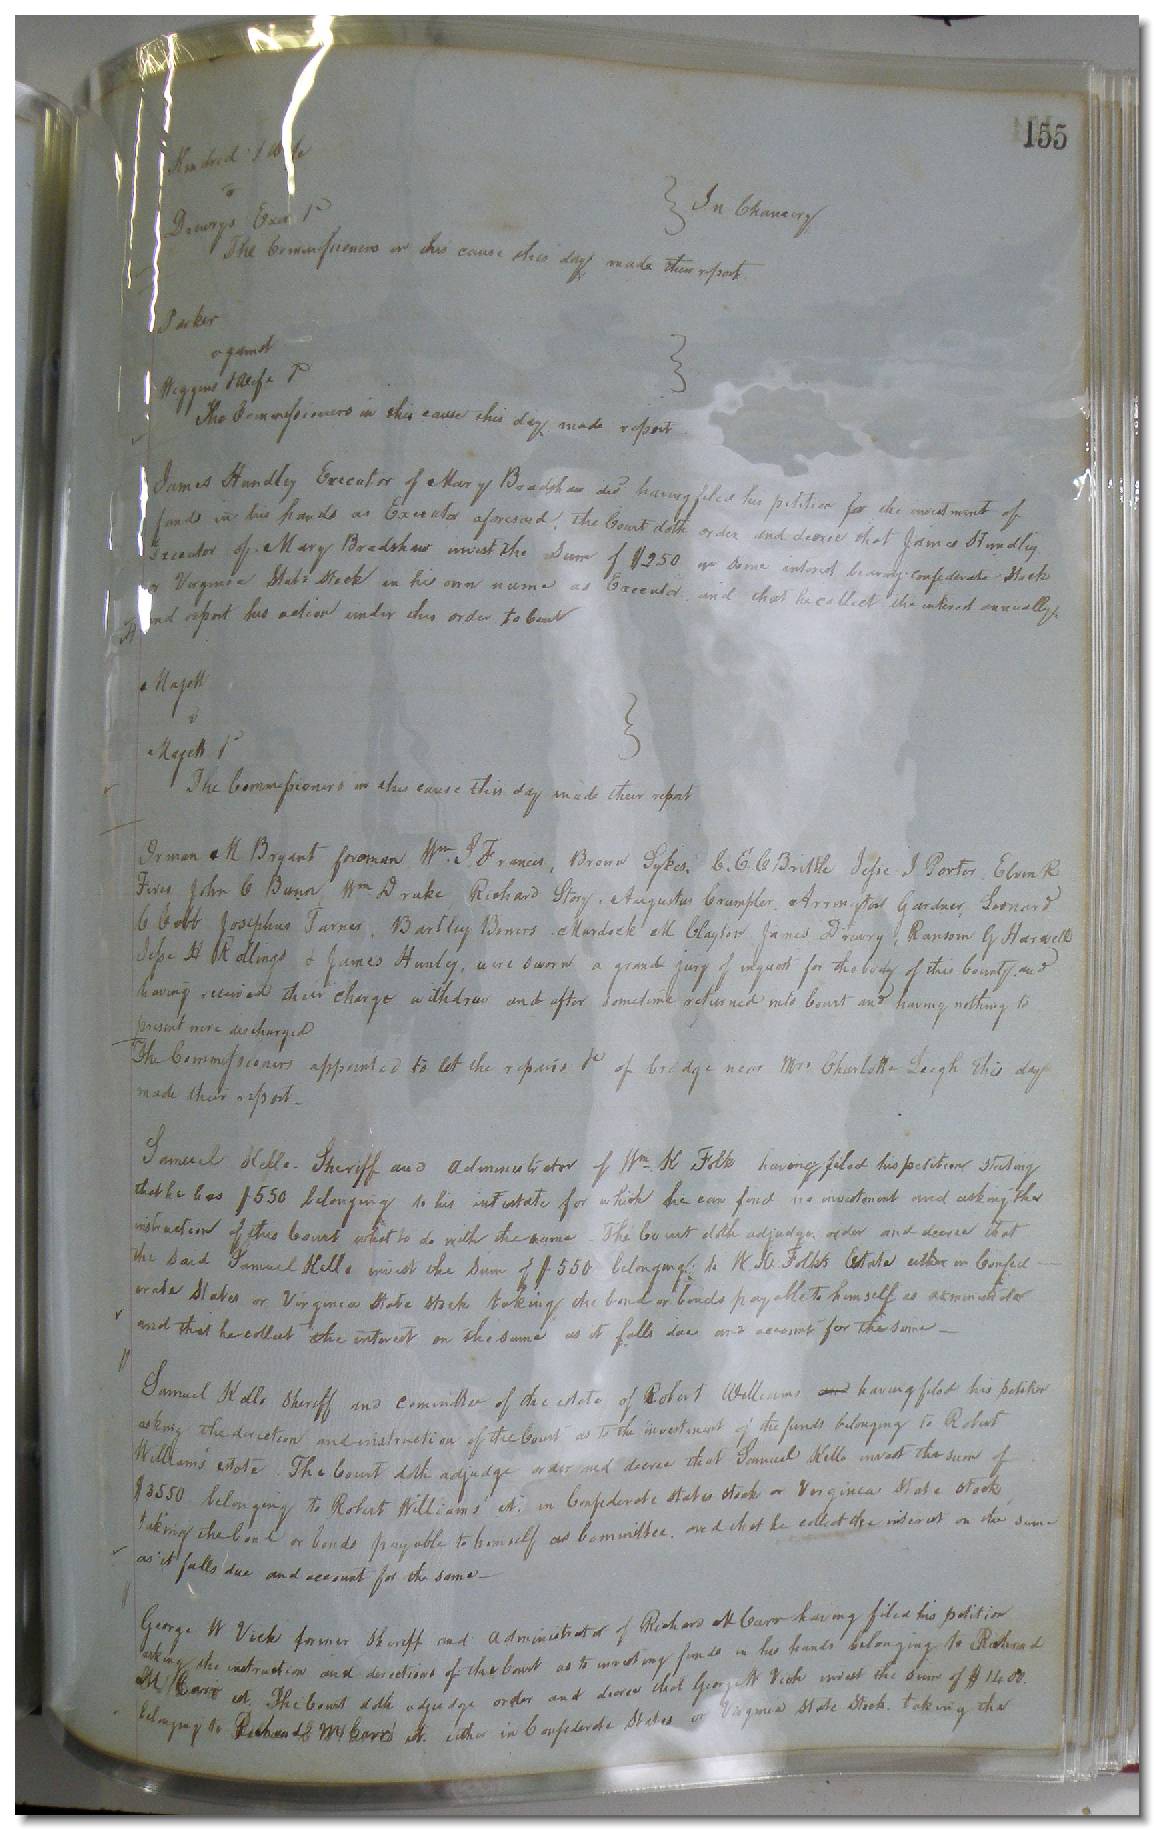 155
Kindred & Wife
v
Drewrys Exor &c } In Chancery
The Commissioners in this cause this day made their report
Parker
against
Wiggins & Wife &c }
The Commissioners in this cause this day made report
James Handley Executor of Mary Bradshaw decd having filed his petition for the investment of
funds in his hands as Executor aforesaid, the Court doth order and decree that James Handley
Executor of Mary Bradshaw invest the Sum of $250 in some interest bearing Confederate Stock
or Virginia State Stock in his own name as Executor, and that he collect the interest annually,
and report his action under this order to Court
Majett
v
Majett &c }
The Commissioners in this cause this day made their report
M Bryant foreman Wm. J Francis, Brown Sykes, C. E. C Brittle Jesse J Porter,
John C Wm Drake, Richard Story, Augustus Crumpler, Arrington Gardner, Leonard
C Cobb Josephus Turner, Bartley Murdock M Clayton James Drewry, Ransom G Harwell
Jesse H Rollings & James Hunley, were sworn a grand jury of inquest for the body of this County and
having received their charge withdrew and after sometime returned into Court and having nothing to
present were discharged
The Commissioners appointed to let the repairs &c of bridge near Mrs Charlotte Leigh this day
made their report
Samuel Kello Sheriff and administrator of Wm H Folk having filed his petition stating
that he has $550 belonging to his intestate for which he can find no investment and asking the
instruction of this Court what to do with the same. The Court doth adjudge order and decree that
the said Samuel Kello invest the Sum of $550 belonging to W. H. Folks Estate either in Confed-
erate States or Virginia State Stock taking the bond or bonds payable to himself as administrator
and that he collect the interest on the same as it falls due and account for the same
Samuel Kello Sheriff and committee of the estate of Robert Williams and having filed his petition
asking the direction and instruction of the Court as to the investment of the funds belonging to Robert
Williams' estate. The Court doth adjudge order and decree that Samuel Kello invest the sum of
$3550 belonging to Robert Williams' est. in Confederate States stock or Virginia State Stock
taking the bond or bonds payable to himself as Committee, and that he collect the interest on the same
as it falls due and account for the same
George W Vick former Sheriff and Administrator of Richard M Carr having filed his petition
asking the instruction and directions of the Court as to investing funds in his hands belonging to Richard
M Carr est. The Court doth adjudge order and decree that George W Vick invest the Sum of $1400.
belonging to Richard M Carr's est. either in Confederate States or Virginia State Stock. taking the